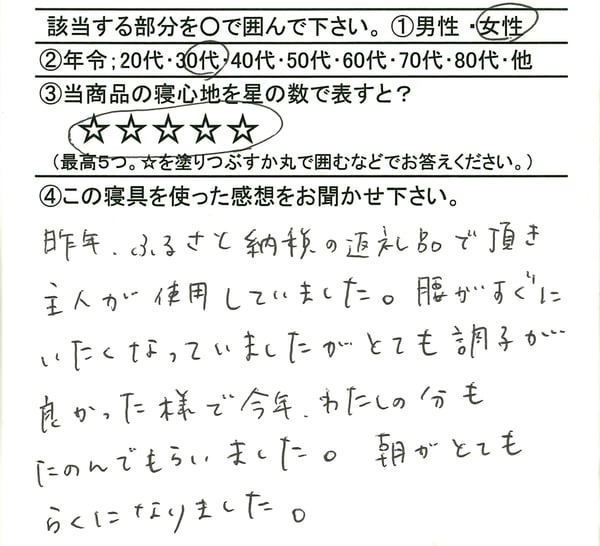 該当する部分を〇で囲んで下さい。①男性・女性
②年令；20代・30代・40代・50代・60代・70代・80代・他
③当商品の寝心地を星の数で表すと？
☆☆☆☆☆
（最高５つ。☆を塗りつぶすか丸で囲むなどでお答えください。）
④この寝具を使った感想をお聞かせ下さい。
昨年、ふるさと納税の返礼品で頂き
主人が使用していました。腰がすぐに
いたくなっていましたがとても調子が
良かった様で今年、わたしの分も
たのんでもらいました。朝がとても
らくになりました。